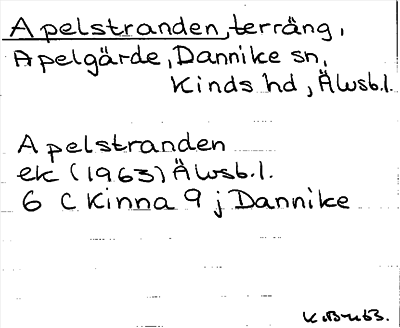 Apelstranden, terräng,
Apelgärde, Dannike sn,
Kinds hd, Älvsb.l.
Apelstranden
ek (1963) Älvsb.l.
6 C Kinna 9 j Dannike